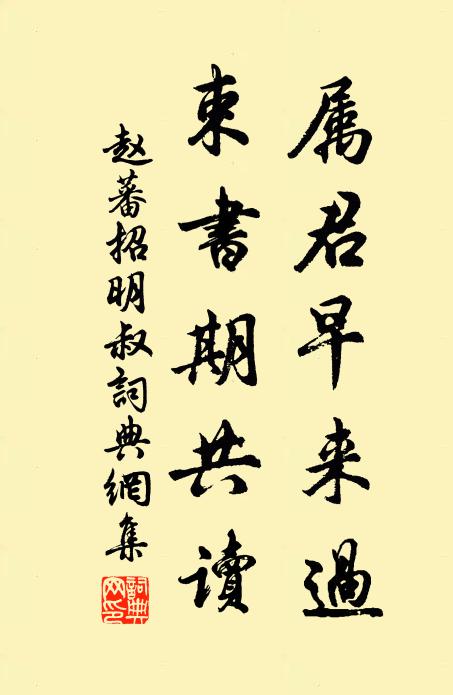 属君早来過
束書期共讀
赵蕃招明叔詞典網集
詞典